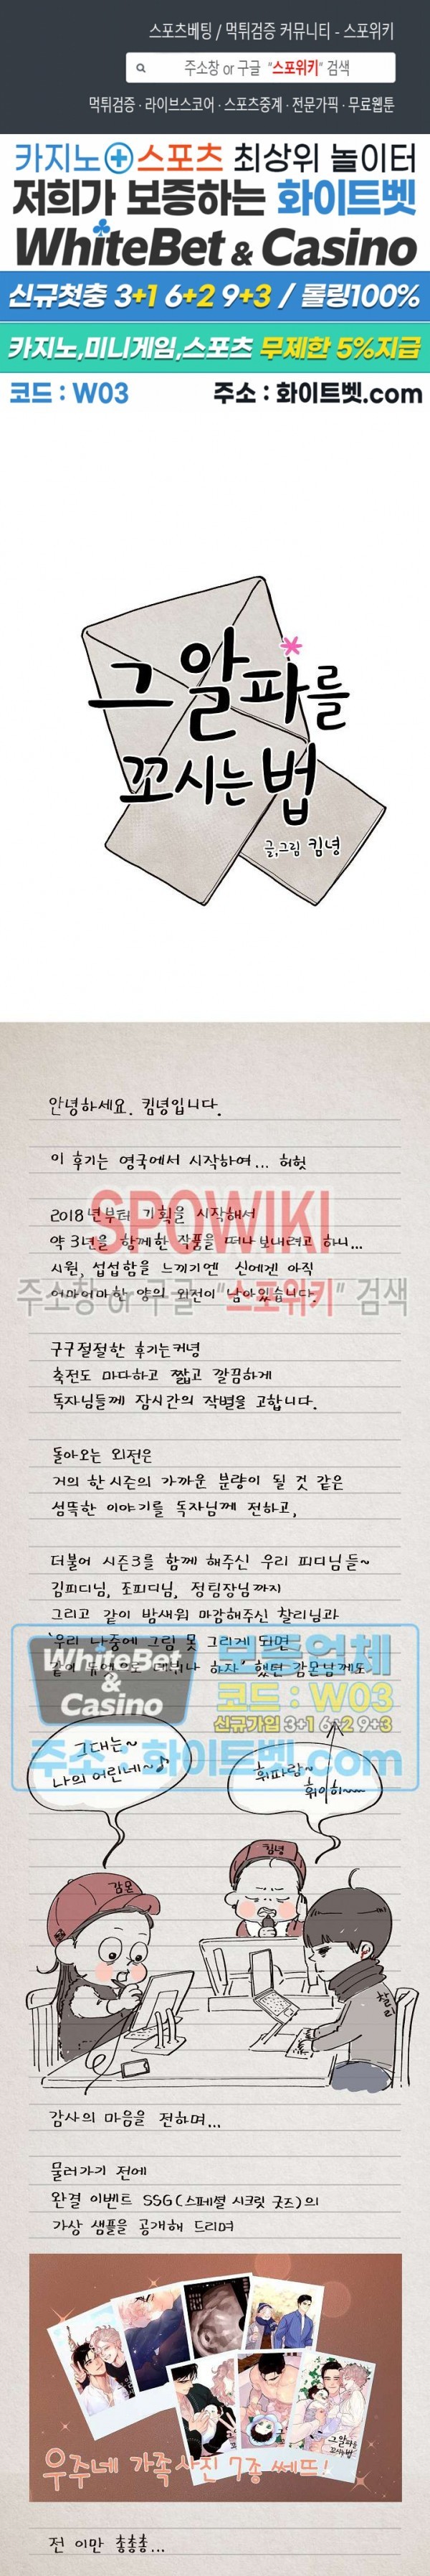 스포츠베팅 / 먹튀검증 커뮤니티 - 스포위키
주소창 or 구글 "스포위키" 검색
먹튀검증 · 라이브스코어 · 스포츠중계 · 전문가픽 · 무료웹툰
카지노+스포츠 최상위 놀이터
저희가 보증하는 화이트벳
WhiteBet & Casino
신규첫충 3+1 6+2 9+3 / 롤링100%
카지노,미니게임,스포츠 무제한 5%지급
코드 : W03 주소 : 화이트벳.com
그 알파를
꼬시는 법
글,그림 킴녕
안녕하세요. 킴녕입니다.
이 후기는 영국에서 시작하여... 허헛
2018년부터 기획을 시작해서
SPOWIKI
약 3년을 함께한 작품을 떠나보내려고 하니...
시원, 섭섭함을 느끼기엔 신에겐 아직
어마어마한 양의 외전이 남아있습니다.
주소창 or 구글 "스포위키" 검색
구구절절한 후기는커녕
축전도 마다하고 짧고 깔끔하게
독자님들께 잠시간의 작별을 고합니다.
돌아오는 외전은
거의 한 시즌의 가까운 분량이 될 것 같은
섬뜩한 이야기를 독자님께 전하고,
더불어 시즌3를 함께 해주신 우리 피디님들~
김피디님, 조피디님, 정팀장님까지
그리고 같이 밤새워 마감해주신 찰리님과
'우리 나중에 그림 못 그리게 되면
같이 듀엣으로 데뷔나 하자' 했던 감몬님께도
WhiteBet & Casino
보증업체
코드 : W03
신규가입 3+1 6+2 9+3
주소 : 화이트벳.com
그대는~
나의 어린네~♪
휘파람~
휘이히~
감몬
킴녕
찰리
감사의 마음을 전하며...
물러가기 전에
완결 이벤트 SSG(스페셜 시크릿 굿즈)의
가상 샘플을 공개해 드리며
그 알파를
꼬시는 법
우주네 가족사진 7종 쎄뜨!
전 이만 총총총...